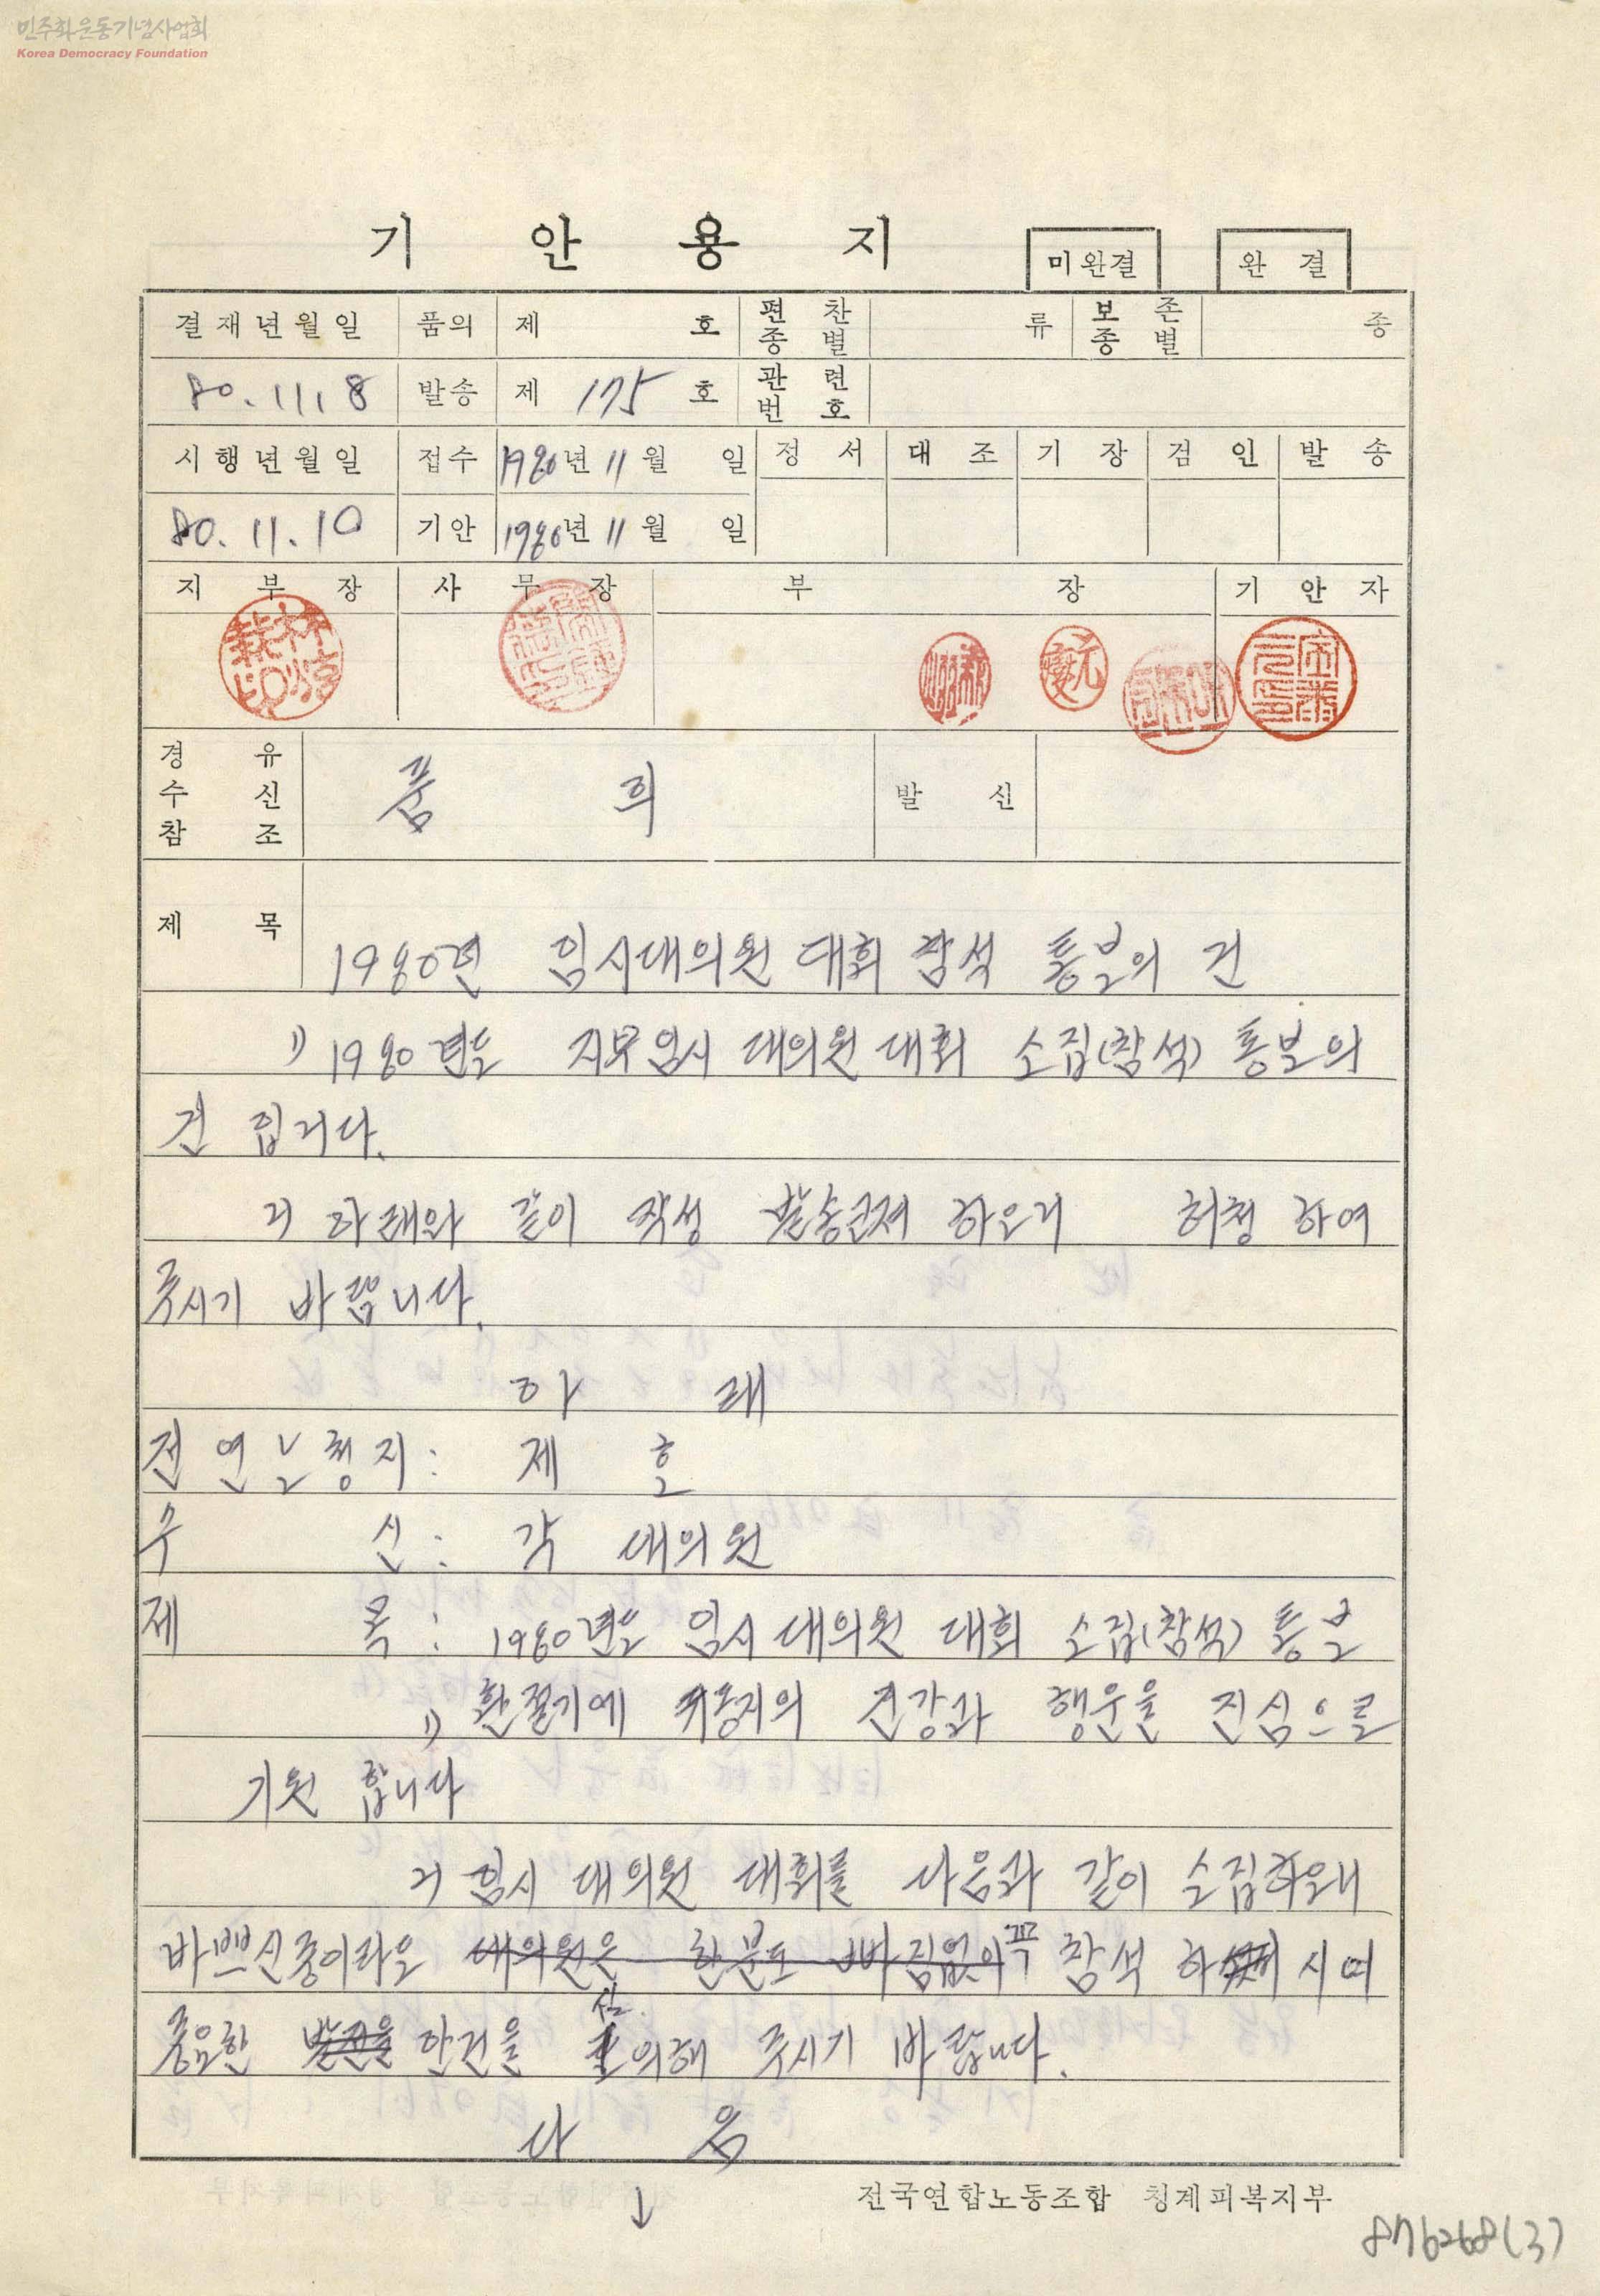 민주화운동기념사업회
Korea Democracy Foundation
기 안 용 지
미완결
완 결
결재년월일 품의 제 호 편찬종별 류 보존종별 종
80.11.8 발송 제 175 호 관련번호
시행년월일 접수 1980년 11월 일 정서 대조 기장 검인 발송
80.11.10 기안 1980년 11월 일
지 부 장 사 무 장 부 장 기 안 자
경 유
수 신
참 조
품 의
발 신
제 목
1980년 임시대의원 대회 참석 통보의 건
1) 1980년도 지부임시 대의원 대회 소집(참석) 통보의
건 입니다.
2) 아래와 같이 작성 발송코져 하오니 허청 하여
주시기 바랍니다.
아 래
전연노청지: 제 호
수 신: 각 대의원
제 목: 1980년도 임시 대의원 대회 소집(참석) 통보
1) 환절기에 귀동지의 건강과 행운을 진심으로
기원 합니다
2) 임시 대의원 대회를 다음과 같이 소집하오니
바쁘신중이라도 대의원은 한분도 빠짐없이 꼭 참석 하시여
중요한 발전을 안건을 심의해 주시기 바랍니다.
다 음
↓
전국연합노동조합 청계피복지부
876268(3)